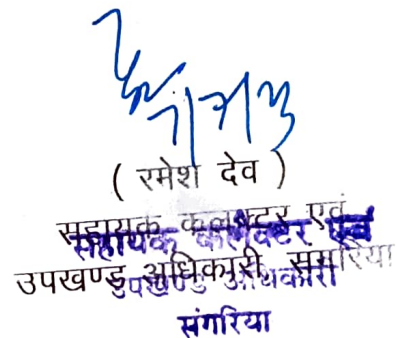 ( रमेश देव )
सहायक कलक्टर एवं
उपखण्ड अधिकारी, संगरिया
सहायक कलक्टर एवं
उपखण्ड अधिकारी
संगरिया